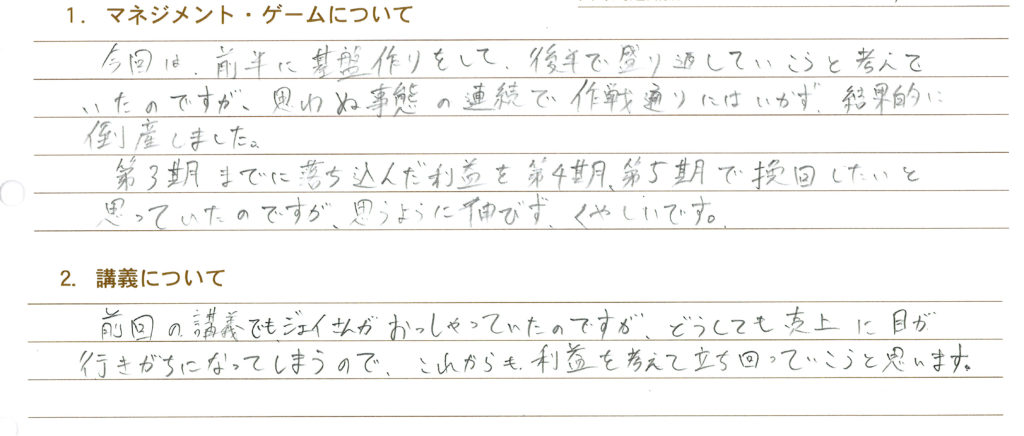 1. マネジメント・ゲームについて
今回は、前半に基盤作りをして、後半で盛り返していこうと考えて
いたのですが、思わぬ事態の連続で作戦通りにはいかず、結果的に
倒産しました。
第3期までに落ち込んだ利益を第4期、第5期で挽回したいと
思っていたのですが、思うように伸びず、くやしいです。
2. 講義について
前回の講義でもジェイさんがおっしゃっていたのですが、どうしても売上に目が
行きがちになってしまうので、これからも利益を考えて立ち回っていこうと思います。